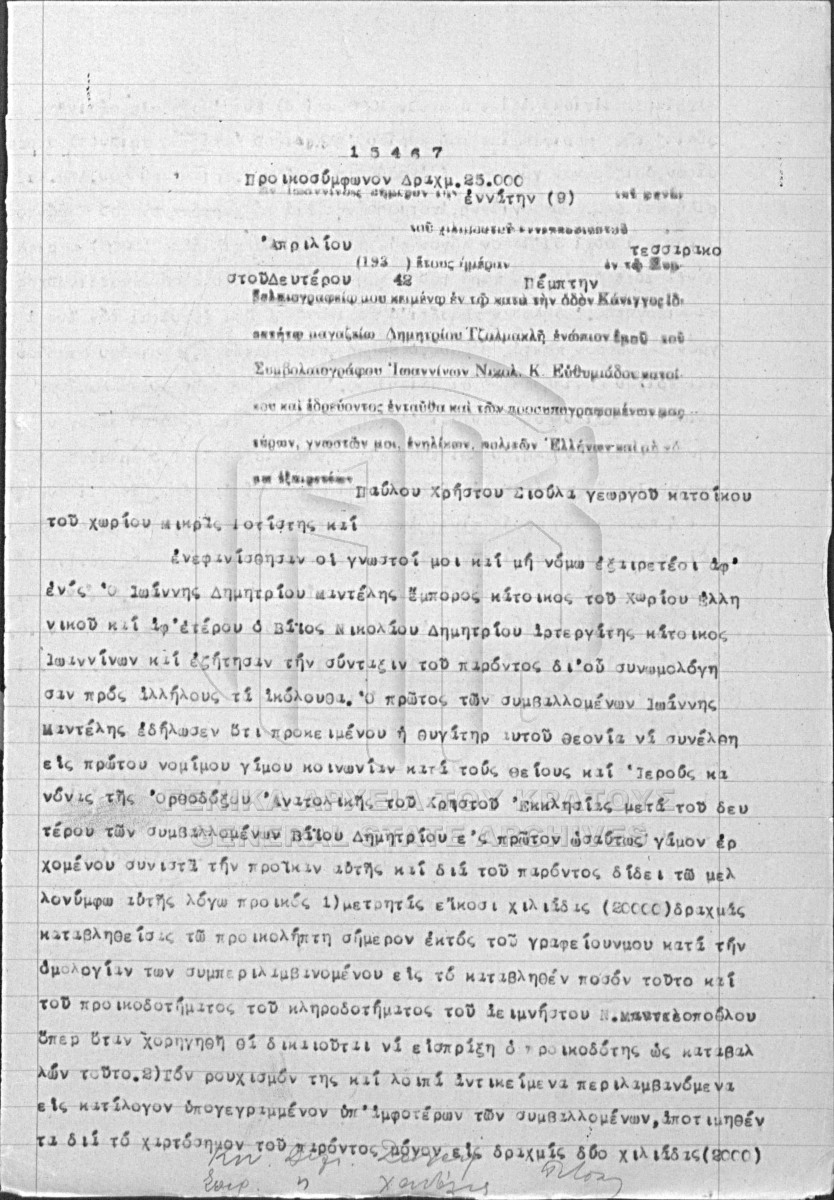 15467
Προικοσύμφωνον Δραχμ.25.000
Ἐν Ἰωαννίνοις σήμερον τὴν ἐννάτην (9) τοῦ μηνὸς
τοῦ χιλιοστοῦ ἐννεακοσιοστοῦ
Ἀπριλίου τεσσαρακο
(193 ) ἔτους ἡμέραν ἐν τῷ Συμ
στοῦΔευτέρου 42 Πέμπτην
βολαιογραφείῳ μου κειμένῳ ἐν τῷ κατὰ τὴν ὁδὸν Κάνιγγος ἰδι
οκτήτῳ μαγαζείῳ Δημητρίου Τζολμακλῆ ἐνώπιον ἐμοῦ τοῦ
Συμβολαιογράφου Ἰωαννίνων Νικολ. Κ. Εὐθυμιάδου κατοί
κου καὶ ἑδρεύοντος ἐνταῦθα καὶ τῶν προσυπογραφομένων μαρ
τύρων, γνωστῶν μοι, ἐνηλίκων, πολιτῶν Ἑλλήνων καὶ μὴ νό
μῳ ἐξαιρετέων
Παύλου Χρήστου Σιούλα γεωργοῦ κατοίκου
τοῦ χωρίου Μικρᾶς Γοτίστης καί
ἐνεφανίσθησαν οἱ γνωστοί μοι καί μή νόμω ἐξαιρετέοι ἀφ'
ἑνός Ὁ Ἰωάννης Δημητρίου Μαντέλης ἔμπορος κάτοικος τοῦ Χωρίου Ἑλλη
νικοῦ καί ἀφ'ἑτέρου ὁ Βάιος Νικολάου Δημητρίου ἀρτεργάτης κάτοικος
Ἰωαννίνων καί ἐζήτησαν τήν σύνταξιν τοῦ παρόντος δι'οὗ συνωμολόγη
σαν πρός ἀλλήλους τά ἀκόλουθα. Ὁ πρῶτος τῶν συμβαλλομένων Ἰωάννης
Μαντέλης ἐδήλωσεν ὅτι προκειμένου ἡ θυγάτηρ αὐτοῦ Θεονία νά συνέλθη
εἰς πρώτου νομίμου γάμου κοινωνίαν κατά τούς θείους καί Ἱερούς κα
νόνας τῆς Ὀρθοδόξου Ἀνατολικῆς τοῦ Χρηστοῦ Ἐκκλησίας μετά τοῦ δευ
τέρου τῶν συμβαλλομένων Βάιου Δημητρίου ε'ς πρῶτον ὡσαύτως γάμον ἐρ
χομένου συνιστᾶ τήν προῖκαν αὐτῆς καί διά τοῦ παρόντος δίδει τῶ μελ
λονύμφω αὐτῆς λόγω προικός 1)μετρητάς εἴκοσι χιλιάδας (20000)δραχμάς
καταβληθείσας τῶ προικολήπτη σήμερον ἐκτός τοῦ γραφείουνμου κατά τήν
ὁμολογίαν των συμπεριλαμβανομένου εἰς τό καταβληθέν ποσόν τοῦτο καί
τοῦ προικοδοτήματος τοῦ κληροδοτήματος τοῦ ἀειμνήστου Ν.Μαντελοπούλου
ὅπερ ὅταν χορηγηθῆ θά δικαιοῦται νά εἰσπράξη ὁ προικοδότης ὡς καταβαλ
λών τοῦτο.2)Τόν ρουχισμόν της καί λοιπά ἀντικείμενα περιλαμβανόμενα
εἰς κατάλογον ὑπογεγραμμένον ὑπ'ἀμφοτέρων τῶν συμβαλλομένων,ἀποτιμηθέν
τα διά τό χαρτόσημον τοῦ παρόντος μόνον εἰς δραχμάς δύο χιλιάδας(2000)
ΓΕΝΙΚΑ ΑΡΧΕΙΑ ΤΟΥ ΚΡΑΤΟΥΣ
GENERAL STATE ARCHIVES